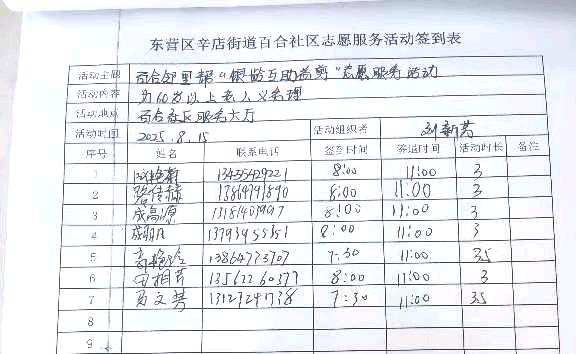 东营区辛店街道百合社区志愿服务活动签到表
活动主题 百合邻里帮“银龄互助益剪”志愿服务活动
活动内容 为60岁以上老人义务理
活动地点 百合社区服务大厅
活动时间 2025.8.15 活动组织者 刘新芳
序号 姓名 联系电话 签到时间 签退时间 活动时长 备注
1 13455429221 8:00 11:00 3
2 13864791890 8:00 11:00 3
3 成高源 8:00 11:00 3
4 8:00 11:00 3
5 13864773707 7:30 11:00 3.5
6 田相芹 13562260377 8:00 11:00 3
7 13127291738 7:30 11:00 3.5
8
9